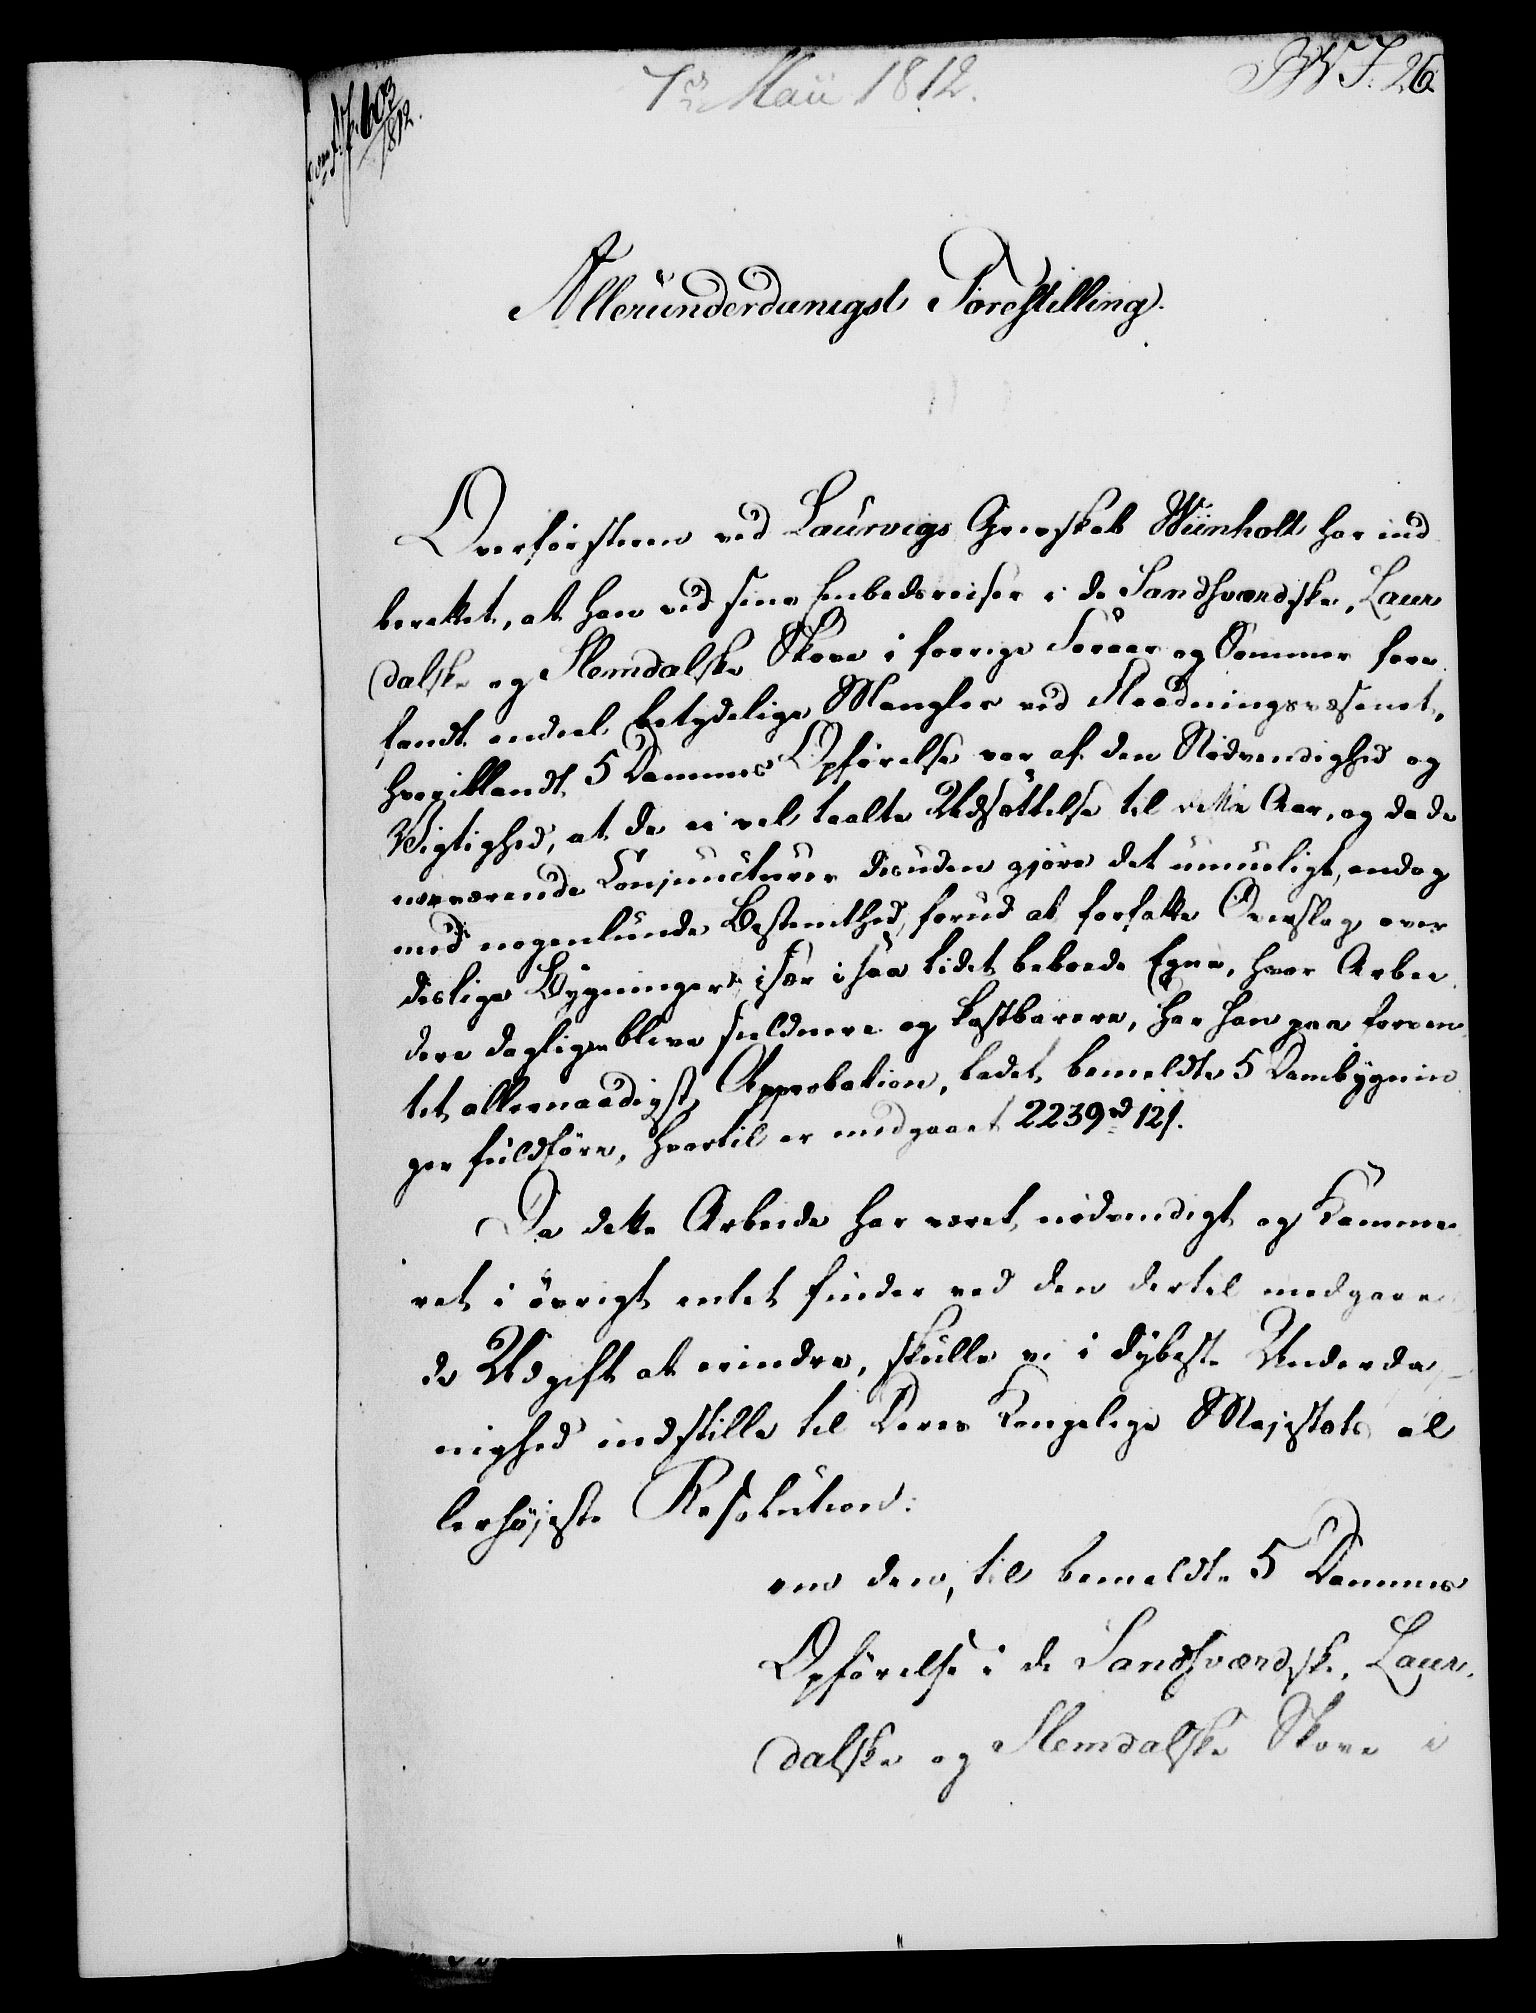 7de Maii 1812.
603
1812.
Allerunderdanigst Forestilling.
Overførsteren ved Laurvigs Grevskab Wiinholt har ind
berettet, at han ved sine Embedsreiser i de Sandsværdske, Laur
dalske og Slemdalske Skove i forrige Foraar og Sommer fore
fandt endeel betydelige Mangler ved Flødningsvæsenet,
hvoriblandt 5 Dammes Opførelse var af den Nødvendighed og
Vigtighed, at de ei vel taalte Udsættelse til dette Aar, og da de
nærværende Conjuncturer desuden gjøre det umueligt, endog
med nogenlunde Bestemthed, forud at forfatte Overslag over
deslige Bygninger, især i saa lidet beboede Egne, hvor Arbei
dere dagligen blive sieldnere og kostbarere, har han paa forven
tet allernaadigst Approbation, ladet bemeldte 5 Dambygnin
ger fuldføre, hvortil er medgaaet 2239rd 12s.
Da dette Arbeide har været nødvendigt og Kamme
ret i øvrigt intet finder ved den dertil medgaae
de Udgift at erindre, skulle vi i dybeste Underda
nighed indstille til Deres Kongelige Majestæts al
lerhøjeste Resolution:
om den, til bemeldte 5 Dammes
Opførelse i de Sandsværdske, Laur
dalske og Slemdalske Skove i